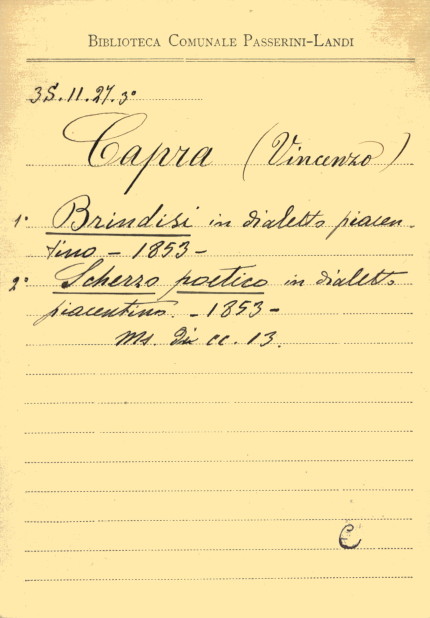 BIBLIOTECA COMUNALE PASSERINI-LANDI
3S.11.27.3°
Capra (Vincenzo)
1° Brindisi in dialetto piacen-
tino - 1853 -
2° Scherzo poetico in dialetto
piacentino. - 1853 -
Ms. di cc. 13.
C